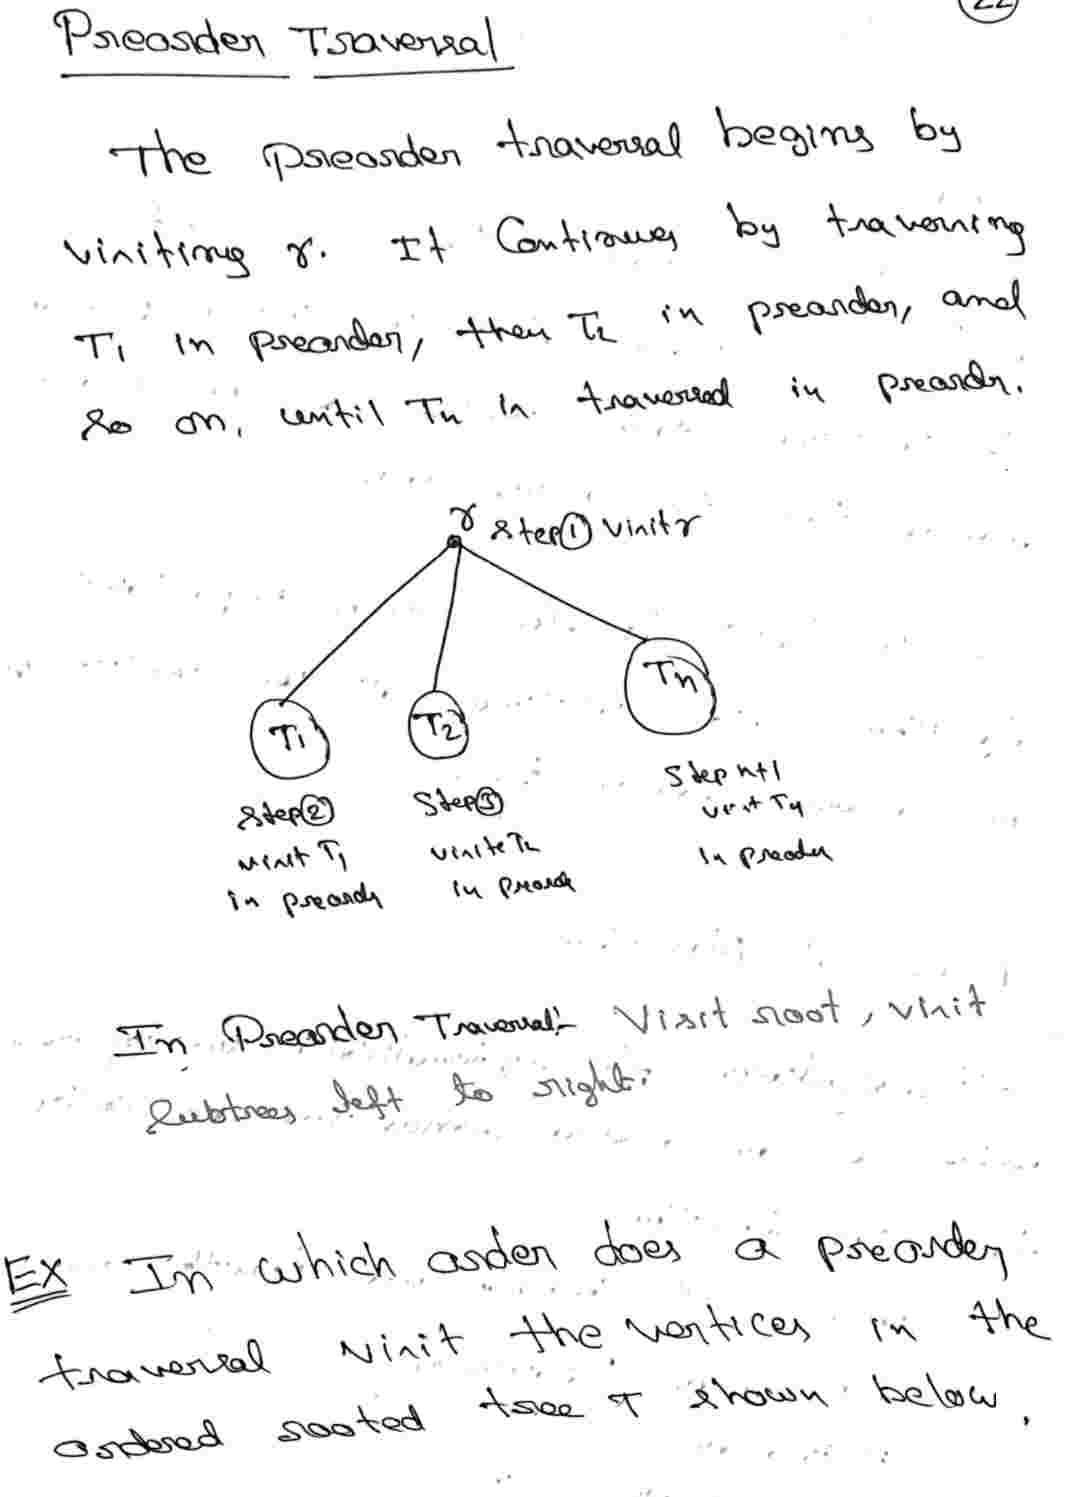 22
Preorder Traversal
The preorder traversal begins by
visiting r. It Continues by traversing
T1 in preorder, then T2 in preorder, and
so on, until Tn is traversed in preorder.
r Step ① visit r
T1 T2 Tn
Step ② Step ③ Step n+1
visit T1 visite T2 visit Tn
in preorder in preorder in preorder
In Preorder Traversal:- Visit root, visit
Subtrees left to right.
EX In which order does a preorder
traversal visit the vertices in the
ordered rooted tree T shown below.